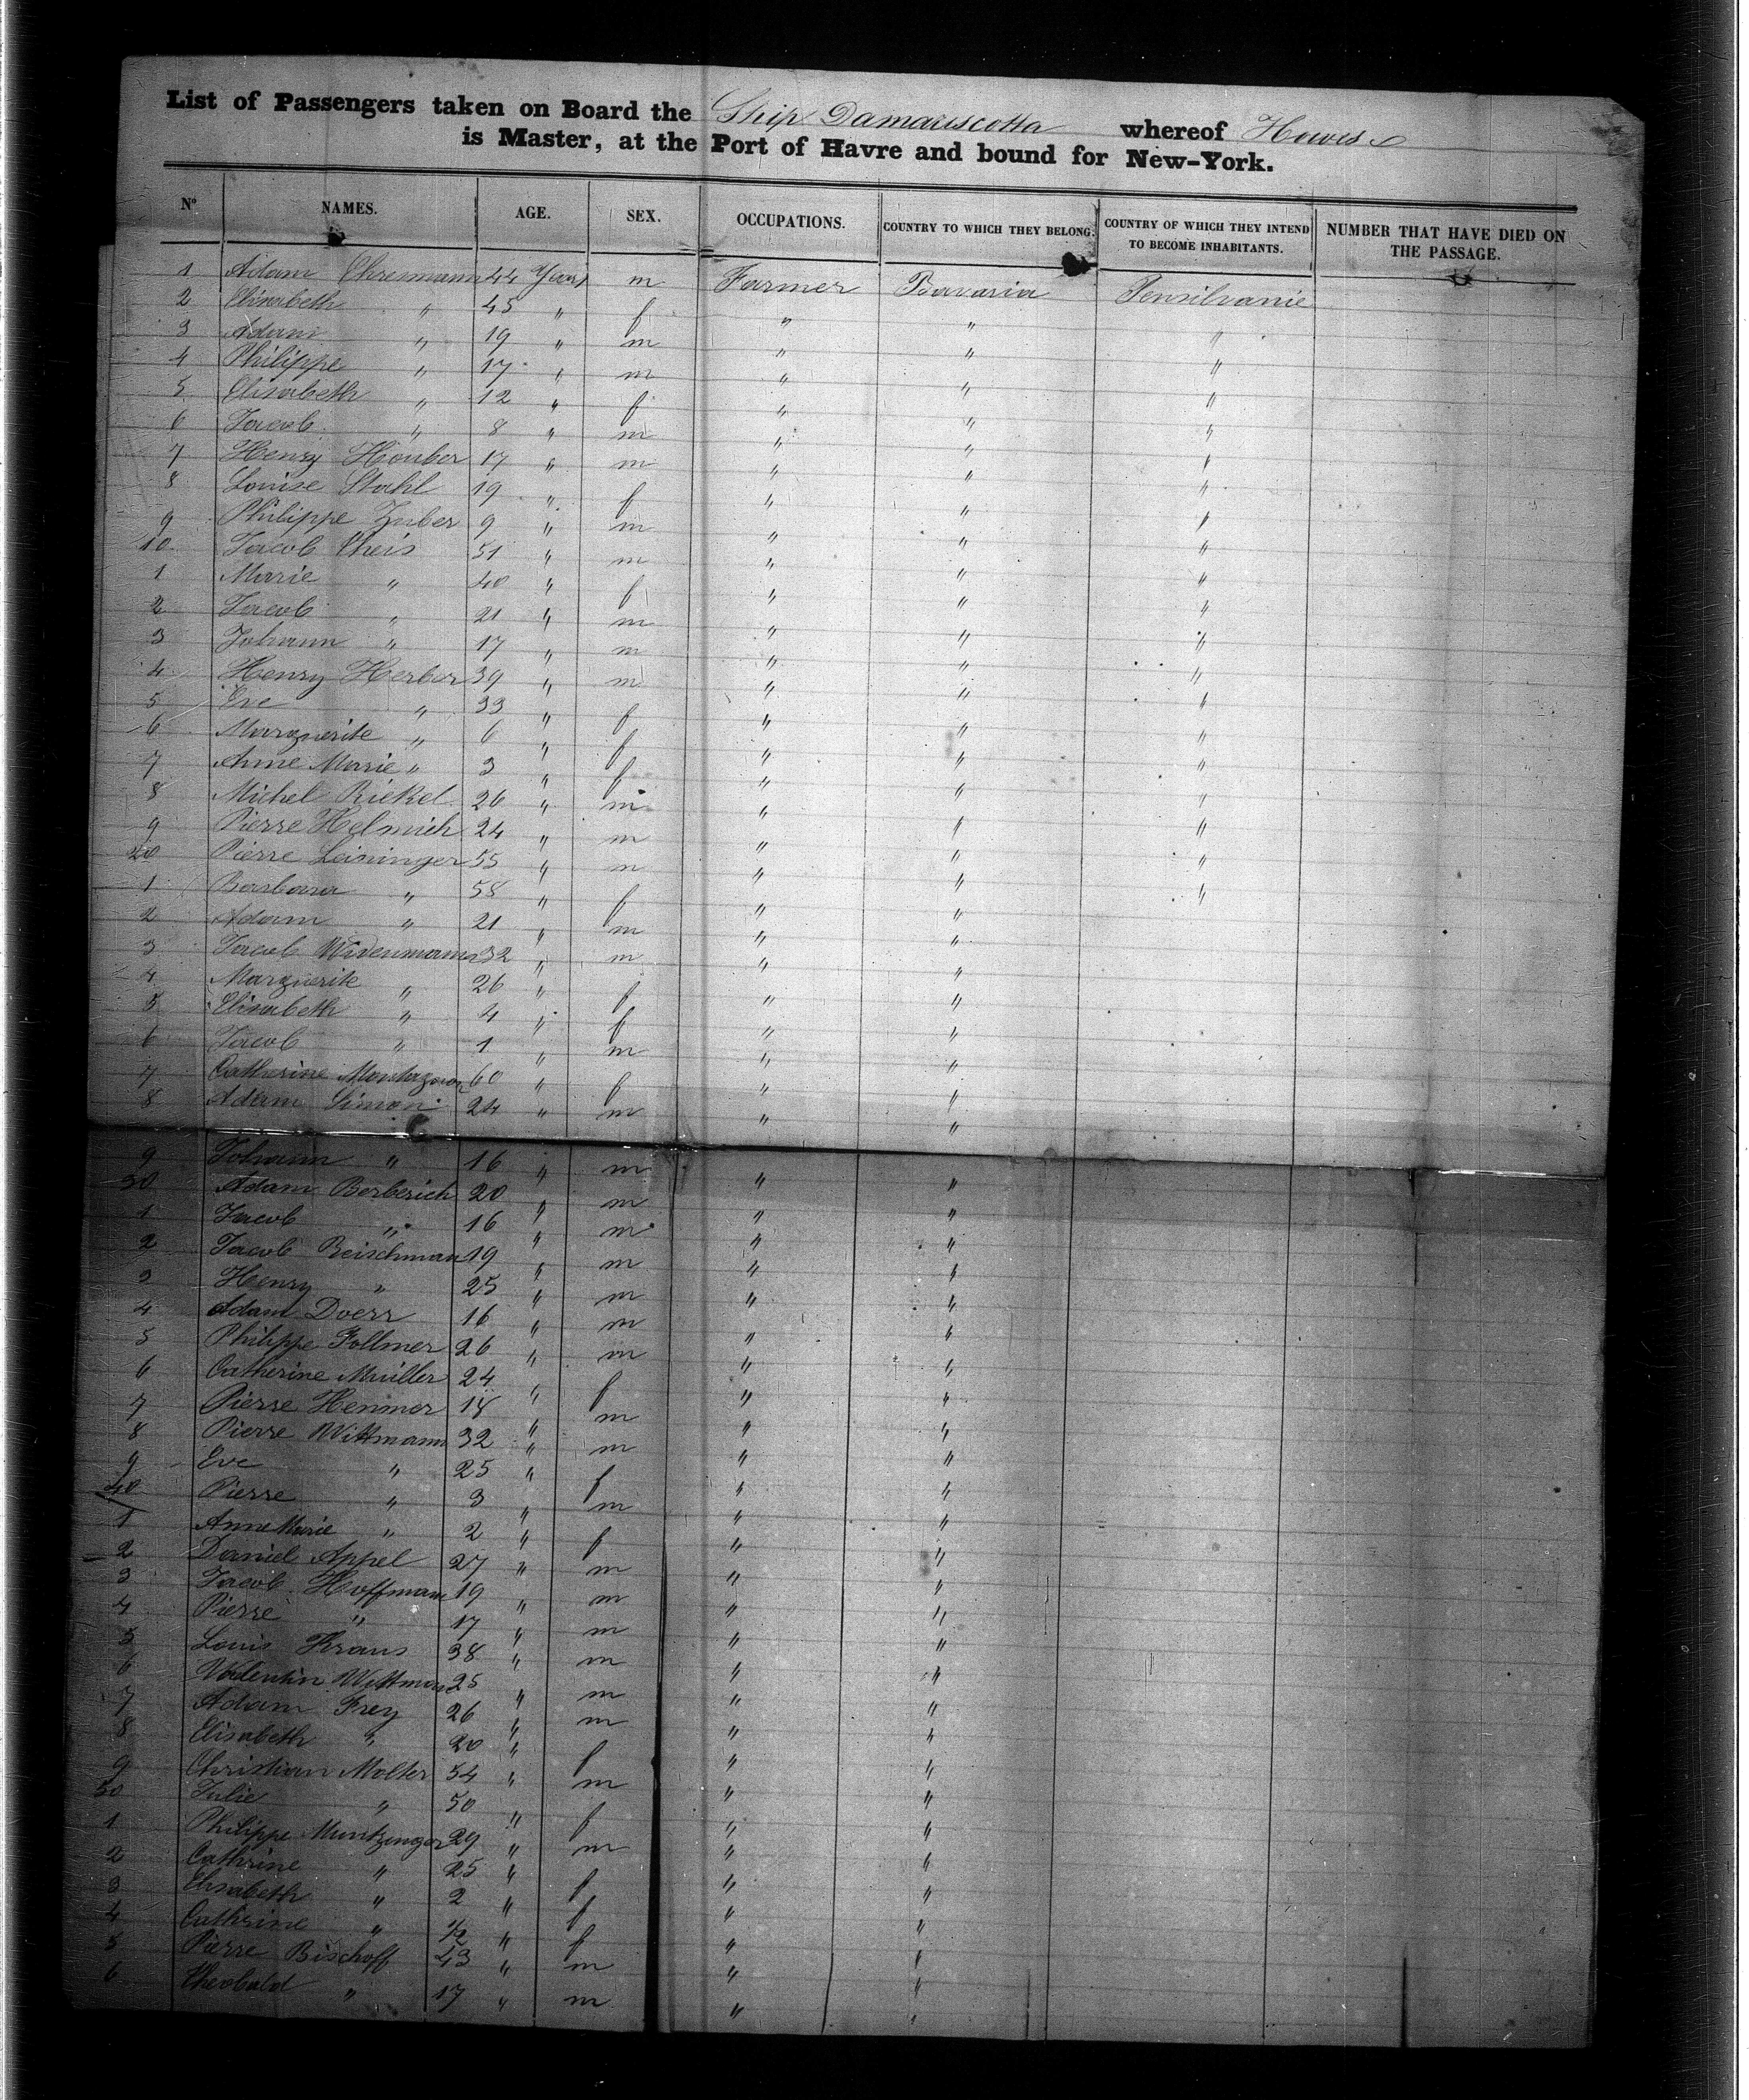 List of Passengers taken on Board the Ship Damariscotta whereof Howes
is Master, at the Port of Havre and bound for New-York.
N° NAMES. AGE. SEX. OCCUPATIONS. COUNTRY TO WHICH THEY BELONG. COUNTRY OF WHICH THEY INTEND TO BECOME INHABITANTS. NUMBER THAT HAVE DIED ON THE PASSAGE.
1 Adam 44 Years m Farmer Bavaria Pensilvanie
2 Elisabeth " 45 " f " " "
3 Adam " 19 " m " " "
4 Philippe " 17 " m " " "
5 Elisabeth " 12 " f " " "
6 Jacob " 8 " m " " "
7 Henry Houber 17 " m " " "
8 Louise Stahl 19 " f " " "
9 Philippe Zuber 9 " m " " "
10 Jacob Theis 51 " m " " "
1 Marie " 40 " f " " "
2 Jacob " 21 " m " " "
3 Johann " 17 " m " " "
4 Henry Herber 39 " m " " "
5 Eve " 33 " f " " "
6 Marguerite " 6 " f " " "
7 Anne Marie " 3 " f " " "
8 Michel Riekel 26 " m " " "
9 Pierre Helmich 24 " m " " "
20 Pierre Leininger 55 " m " " "
1 Barbara " 58 " f " " "
2 Adam " 21 " m " "
3 Jacob Widenmann 32 " m " "
4 Marguerite " 26 " f " "
5 Elisabeth " 4 " f " "
6 Jacob " 1 " m " "
7 Catherine 60 " f " "
8 Adam Simon 24 " m " "
9 Johann " 16 " m " "
30 Adam Berberich 20 " m " "
1 Jacob " 16 " m " "
2 Jacob Beischman 19 " m " "
3 Henry " 25 " m " "
4 Adam Doerr 16 " m " "
5 Philippe Follmer 26 " m " "
6 Catherine Muller 24 " f " "
7 Pierre Hemmer 18 " m " "
8 Pierre Wittmann 32 " m " "
9 Eve " 25 " f " "
40 Pierre " 3 " m " "
1 Anne Marie " 2 " f " "
2 Daniel Appel 27 " m " "
3 Jacob Hoffmann 19 " m " "
4 Pierre " 17 " m " "
5 Louis Kraus 38 " m " "
6 Valentin Wittman 25 " m " "
7 Adam Frey 26 " m " "
8 Elisabeth " 20 " f " "
9 Christian Molter 54 " m " "
50 Julie " 50 " f " "
1 Philippe Muntzinger 29 " m " "
2 Cathrine " 25 " f " "
3 Elisabeth " 2 " f " "
4 Cathrine " 1/2 " f " "
5 Pierre Bischoff 43 " m " "
6 Theobald " 17 " m " "